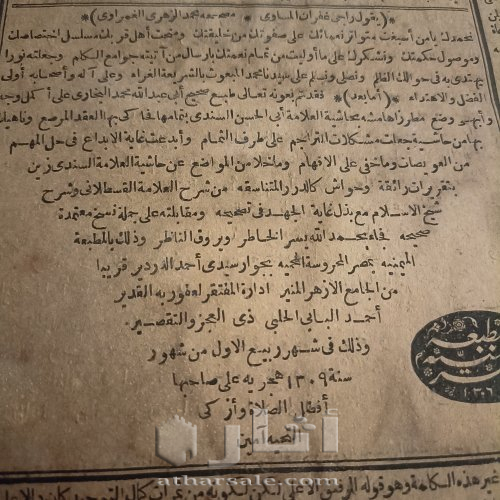 ﴿يقول راجي غفران المساوي * مصححه محمد الزهري الغمراوي﴾
نحمدك يا من أسبغت متواتر نعمائك على صفوتك من خليقتك ومنحت أهل قربك مسلسل اختصاصك
وموصول حكمتك ونشكرك على ما أوليت من تمام نعمتك بارسال من آتيته جوامع الكلم وجعلته نورا
يهتدى به في حوالك الظلم ونصلي ونسلم على سيدنا محمد المبعوث بالشريعة الغراء وعلى آله وأصحابه أولى
الفضل والاهتداء ﴿أما بعد﴾ فقد تم بعونه تعالى طبع صحيح أبي عبد الله محمد البخارى على أكمل وجه
وأبهى وضع مطرزا هامشه بحاشية العلامة أبي الحسن السندى بتمامها فما كى بها العقد المرصع وناهيك
بها من حاشية جعلت مشكلات التراجم على طرف الثمام وأبدعت غاية الابداع في حل المهم
من العويصات وما خفى على الافهام وما خلا من المواضع عن حاشية العلامة السندى زين
بتقريرات رائقة وحواش كالدرر المتناسقه من شرح العلامة القسطلانى وشرح
شيخ الاسلام مع بذل غاية الجهد فى تصحيحه ومقابلته على جملة نسخ معتمدة
صحيحه فجاء بحمد الله يسر الخاطر ويروق الناظر وذلك بالمطبعة
الميمنيه بمصر المحروسة المحميه بجوار سيدى أحمد الدردير قريبا
من الجامع الازهر المنير ادارة المفتقر لعفو ربه القدير
أحمد البابى الحلبى ذى العجز والتقصير.
وذلك فى شهر ربيع الاول من شهور
سنة ١٣٠٩ هجريه على صاحبها
أفضل الصلاة وأزكى
التحية آمين
آثار
atharsale.com